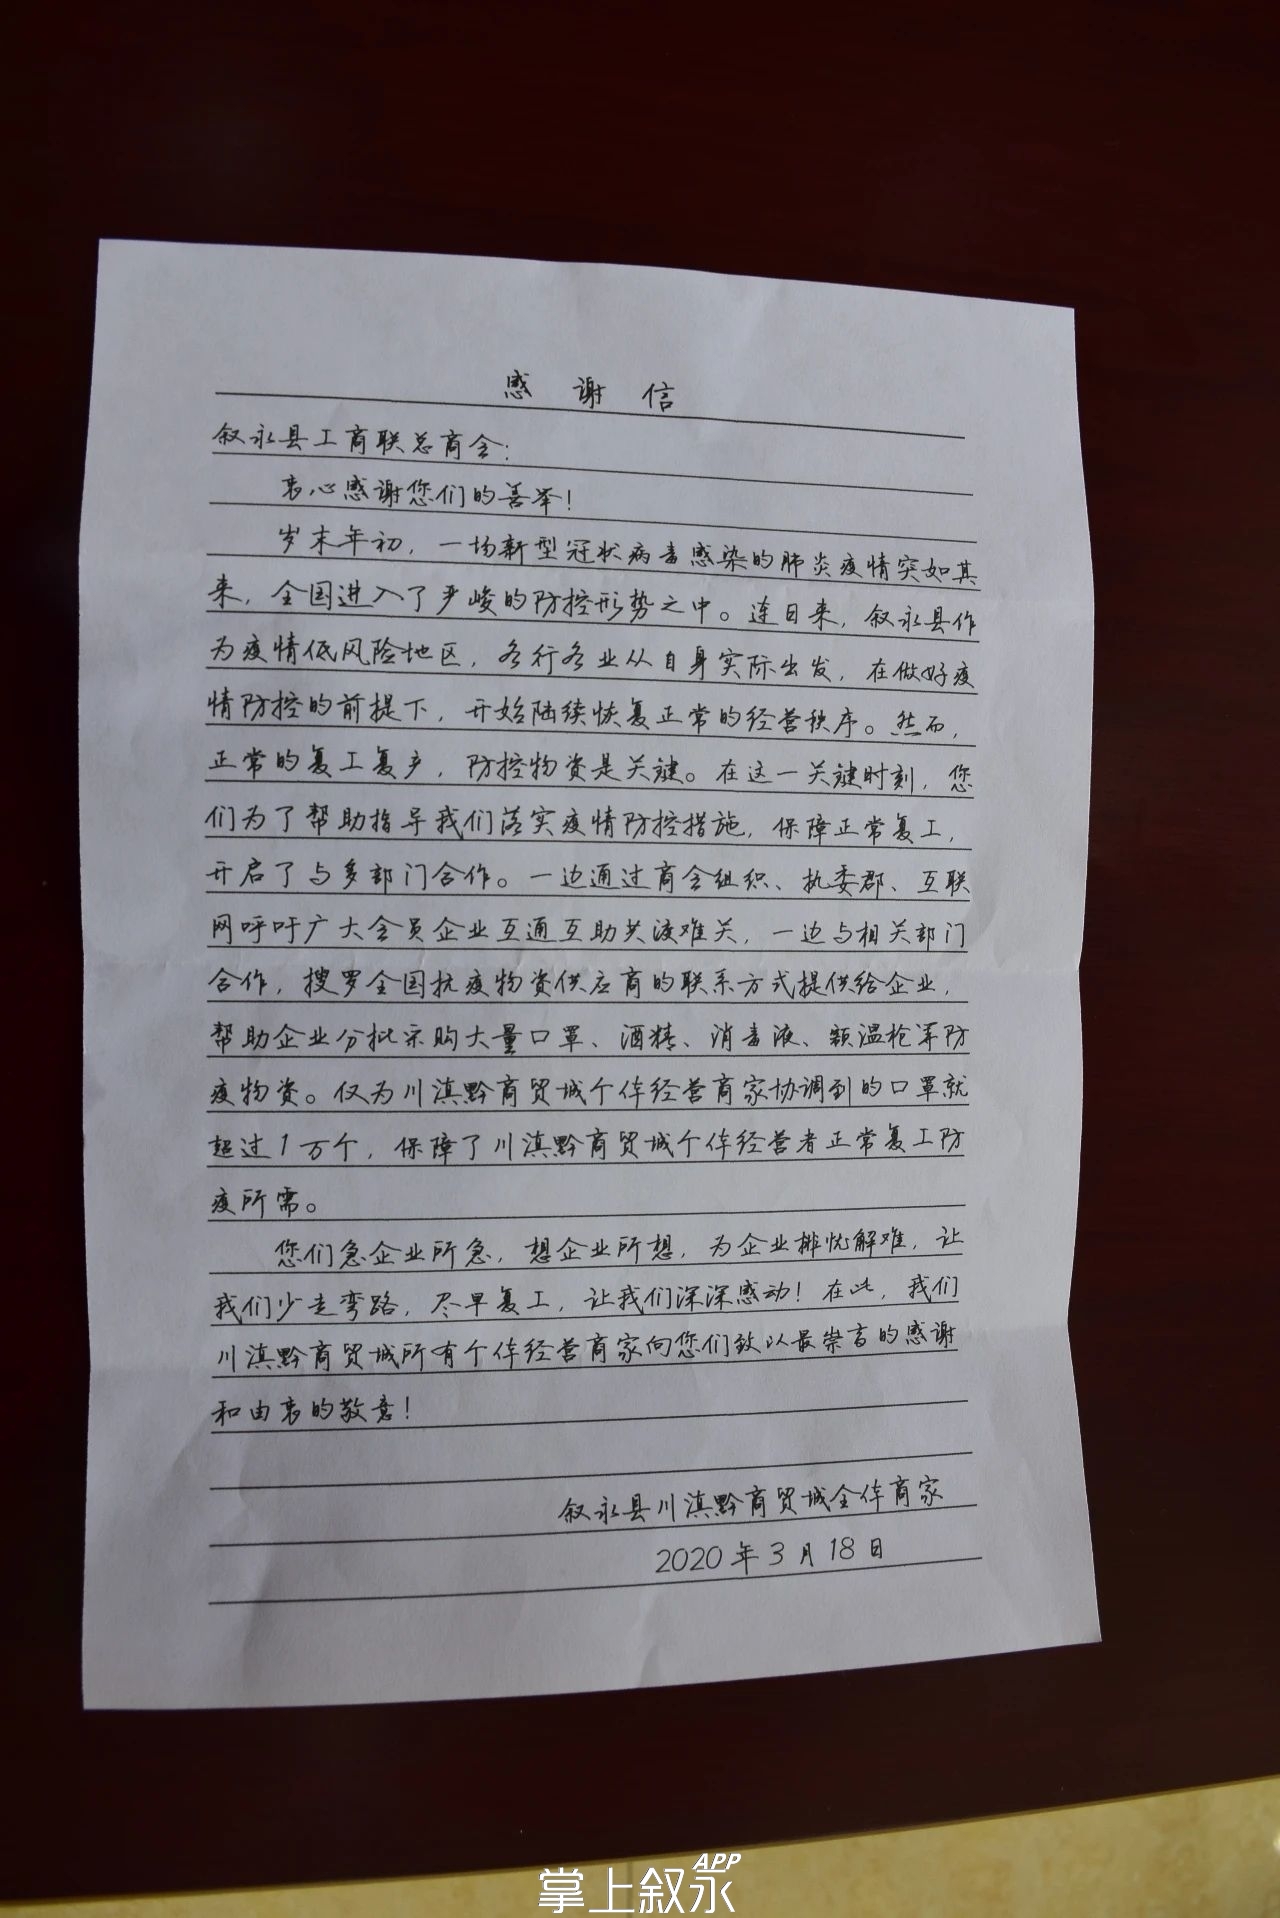 感谢信
叙永县工商联总商会：
衷心感谢您们的善举！
岁末年初，一场新型冠状病毒感染的肺炎疫情突如其
来，全国进入了严峻的防控形势之中。连日来，叙永县作
为疫情低风险地区，各行各业从自身实际出发，在做好疫
情防控的前提下，开始陆续恢复正常的经营秩序。然而，
正常的复工复产，防控物资是关键。在这一关键时刻，您
们为了帮助指导我们落实疫情防控措施，保障正常复工，
开启了与多部门合作。一边通过商会组织、执委群、互联
网呼吁广大会员企业互通互助共渡难关，一边与相关部门
合作，搜罗全国抗疫物资供应商的联系方式提供给企业，
帮助企业分批采购大量口罩、酒精、消毒液、额温枪等防
疫物资。仅为川滇黔商贸城个体经营商家协调到的口罩就
超过1万个，保障了川滇黔商贸城个体经营者正常复工防
疫所需。
您们急企业所急，想企业所想，为企业排忧解难，让
我们少走弯路，尽早复工，让我们深深感动！在此，我们
川滇黔商贸城所有个体经营商家向您们致以最崇高的感谢
和由衷的敬意！
叙永县川滇黔商贸城全体商家
2020年3月18日
掌上叙永APP